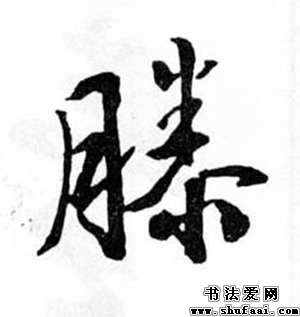 滕
书法爱网
www.shufaai.com